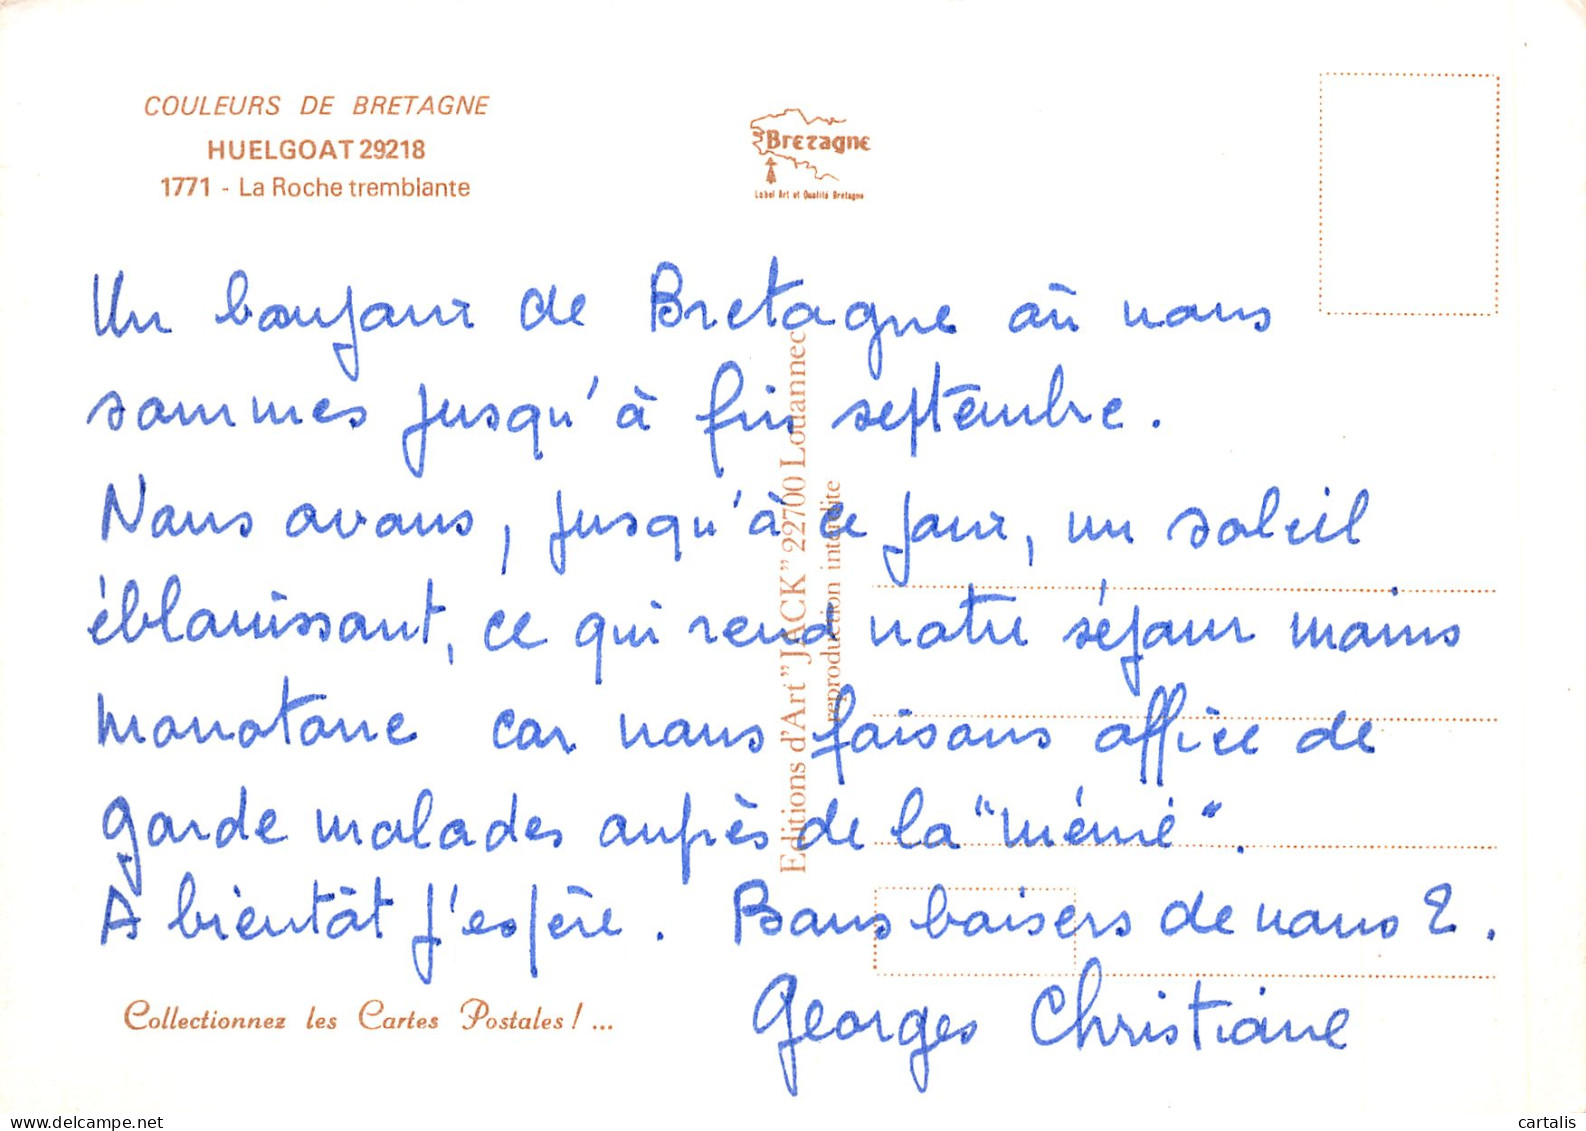 COULEURS DE BRETAGNE
HUELGOAT 29218
1771 - La Roche tremblante
Bretagne
Label Art et Qualité Bretagne
Un bonjour de Bretagne où nous
sommes jusqu'à fin septembre.
Nous avons, jusqu'à ce jour, un soleil
éblouissant, ce qui rend notre séjour moins
monotone car nous faisons office de
garde malades auprès de la "mémé".
A bientôt j'espère. Bons baisers de nous 2.
Georges Christiane
Editions d'Art "JACK" 22700 Louannec
reproduction interdite
Collectionnez les Cartes Postales ! ...
delcampe.net
cartalis